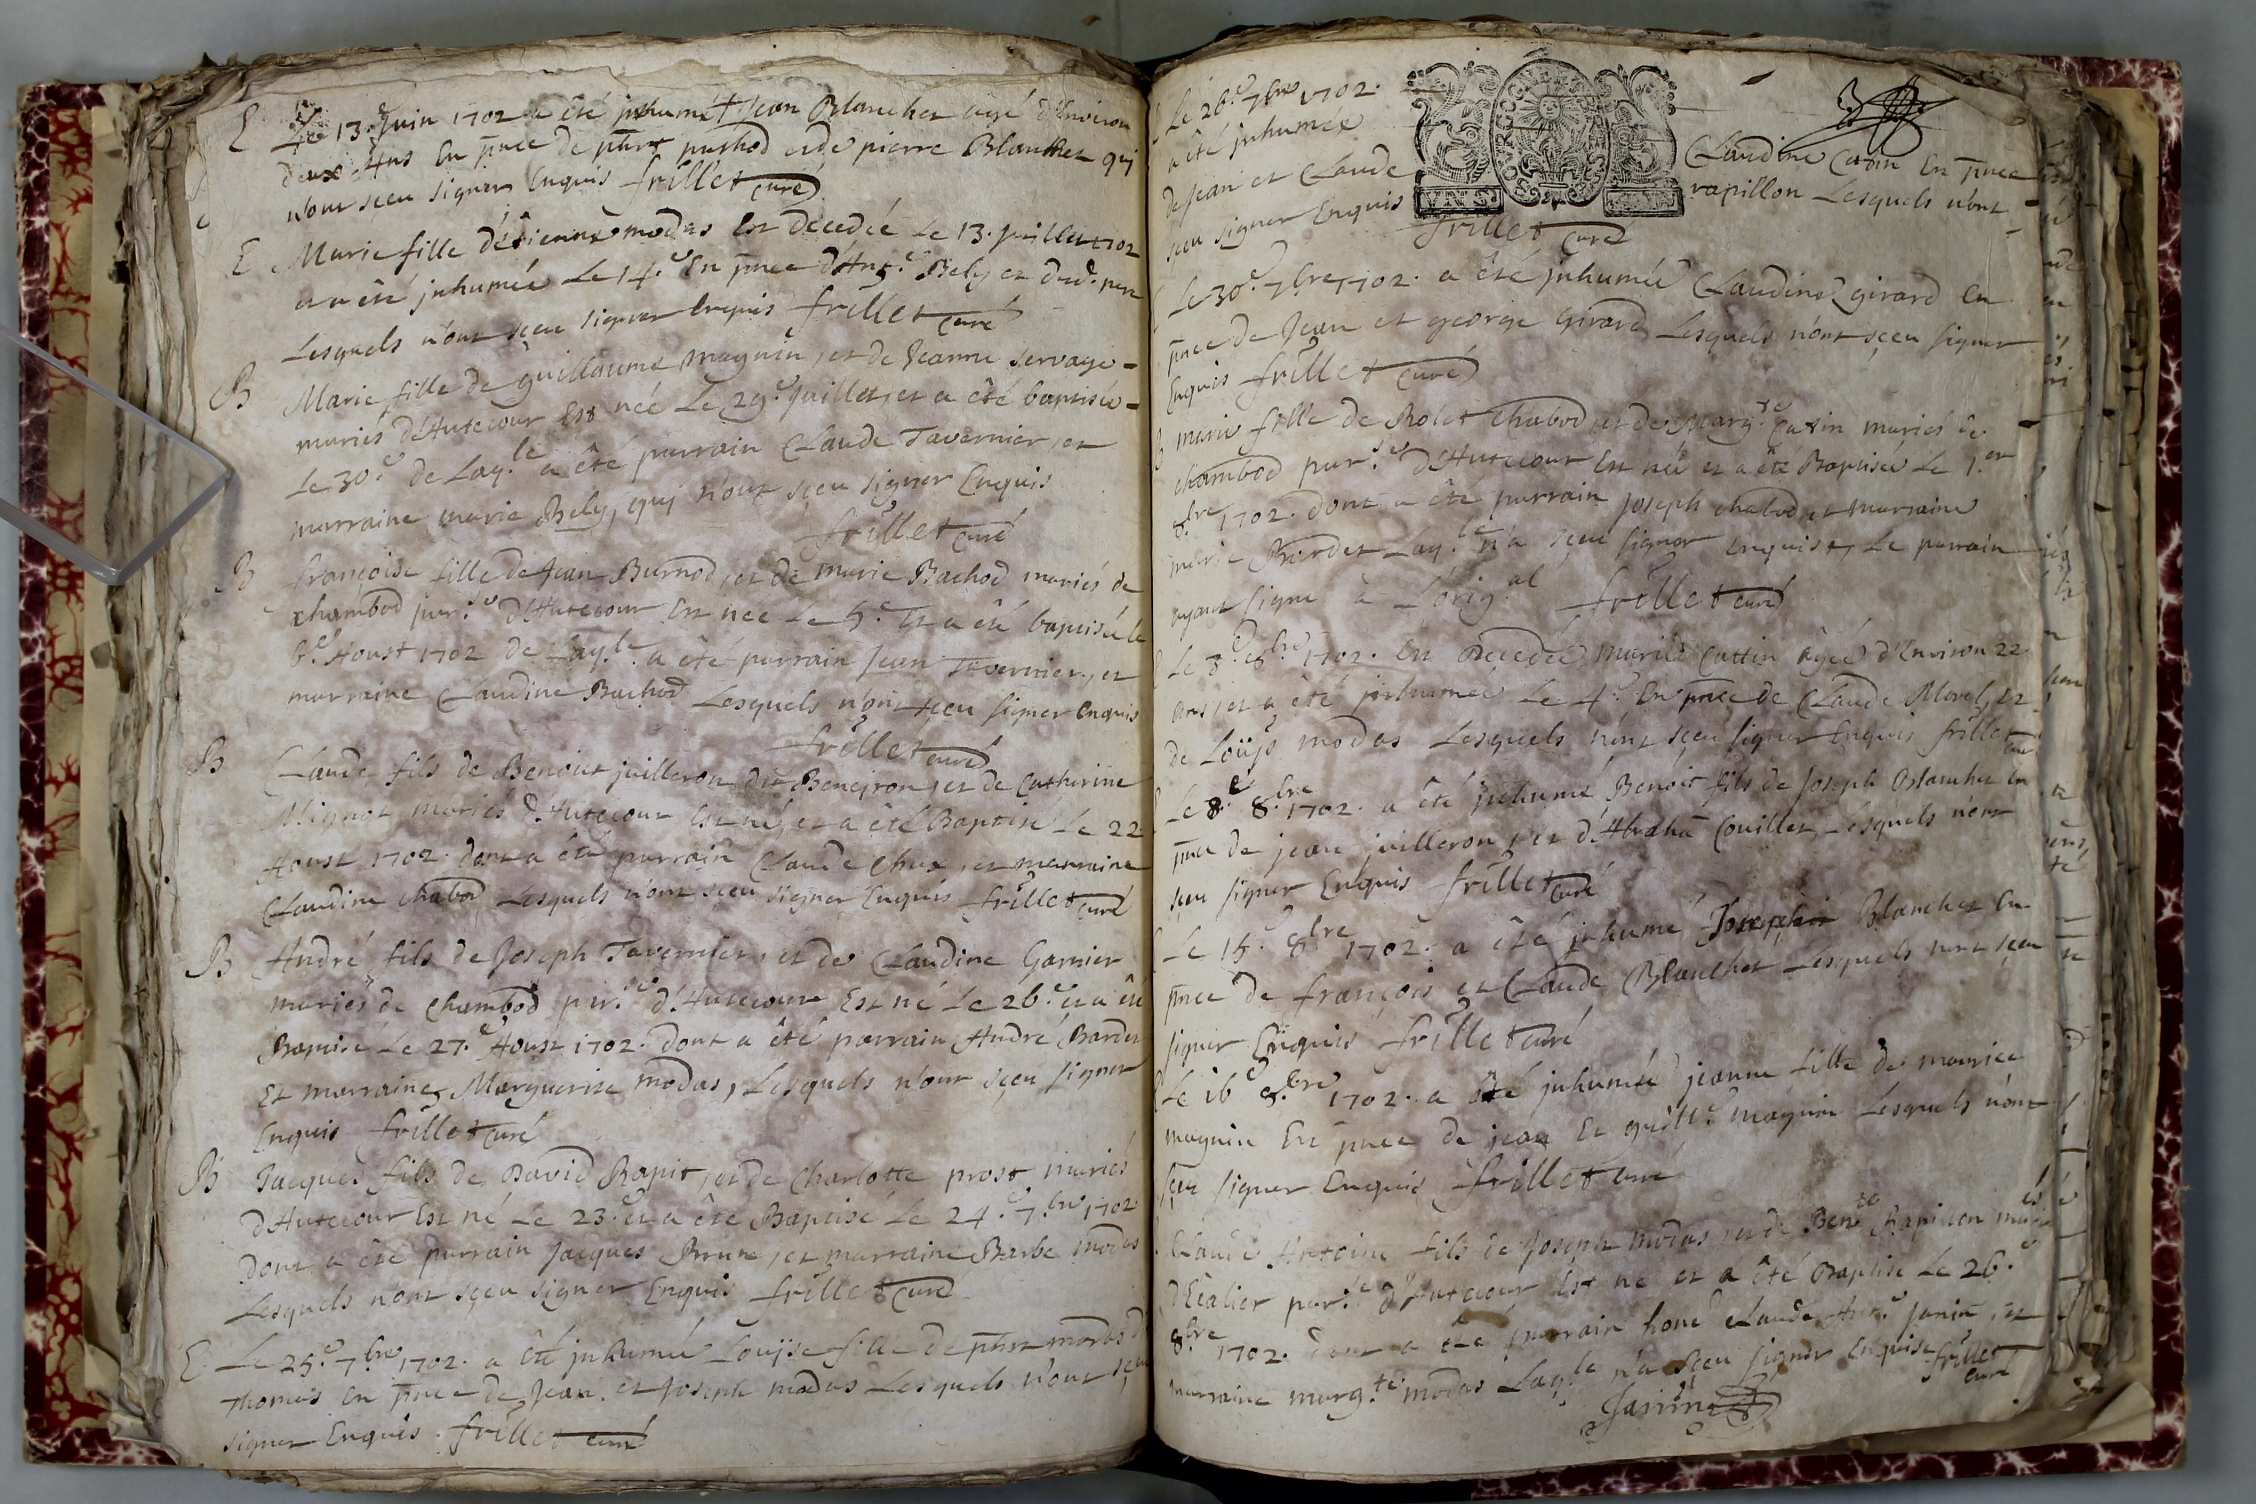 E Le 13.e Juin 1702 a été jnhumé Jean Blanchet agé d'Environ
deux Ans En pnce de phrt pushod et de pierre Blanchet quj
n'ont sçeu signer Enquis frillet curé
E Marie fille d'étienne modas Est décedée Le 13. juillet 1702
et a été jnhumée Le 14.e En pnce d'Ant.e Bely et dud. pere
Lesquels n'ont sçeu signer Enquis frillet curé
B Marie fille de guillaume magnin, et de Jeanne servage
mariés d'Hutecour Est née Le 29.e Juillet, et a été baptisée
Le 30.e de Laq.le a été parrain Claude Tavernier, et
marraine marie Bely, quj n'ont sçeu signer Enquis
frillet curé
B françoise fille de Jean Burnod, et de marie Bachod mariés de
chambod par.se d'Hutecour Est née Le 5.e Et a été baptisée le
6.e Aoust 1702 de Laq.le a été parrain Jean Tavernier, et
marraine Claudine Bachod Lesquels n'ont sçeu signer Enquis
frillet curé
B Claude fils de Benoit juilleron dit Beneiron, et de Catherine
Mignot mariés d'Hutecour Est né, et a été Baptisé Le 22
Aoust 1702. dont a été parrain Claude Chux, et marraine
Claudine chabod Lesquels n'ont sçeu signer Enquis frillet curé
B André fils de Joseph Tavernier, et de Claudine Garnier
mariés de Chambod par.se d'Hutecour Est né Le 26.e et a été
Baptisé Le 27.e Aoust 1702. dont a été parrain André Bardet
Et marraine Marguerite modas, Lesquels n'ont sçeu signer
Enquis frillet curé
B Jacques fils de David Rapit, et de Charlotte prost mariés
d'Hutecour Est né Le 23.e et a été Baptisé Le 24.e 7.bre 1702
dont a été parrain Jacques Brun, et marraine Barbe modas
Lesquels n'ont sçeu signer Enquis frillet curé
E Le 25.e 7.bre 1702. a été jnhumée Louÿse fille de phrt modas d
Thomas En pnce de Jean et Joseph modas Lesquels n'ont sçeu
signer Enquis. frillet curé
Le 26.e 7bre 1702.
a été jnhumée Claudine Catin En pnce
de Jean et Claude rapillon Lesquels n'ont
sçeu signer Enquis frillet curé
VN S.
Le 30.e 7bre 1702. a été jnhumée Claudine girard En
pnce de Jean et george Girard Lesquels n'ont sçeu signer
Enquis frillet curé
marie fille de Rolet Chabod, et de Marg.te Catin mariés de
chambod par.se d'Hutecour Est née et a été Baptisée Le 1.er
8.bre 1702. dont a été parrain joseph chabod, et marraine
marie Bardet Laq.le n'a sçeu signer Enquise, Le parrain
ayant signé à L'orig.al frillet curé
Le 3.e 8.bre 1702. Est Decedée Marie Cattin âgée d'Environ 22
ans, et a été jnhumée Le 4.e En pnce de Claude Morel, et
de Loüÿs modas Lesquels n'ont sçeu signer Enquis frillet curé
Le 8.e 8.bre 1702. a été jnhumé Benoit fils de Joseph Blanchet En
pnce de jean juilleron, et d'Abraha Couillet Lesquels n'ont
sçeu signer Enquis frillet curé
Le 15.e 8bre 1702. a été jnhumé Joseph Blanchet En
pnce de françois et Claude Blanchet Lesquels n'ont sçeu
signer Enquis frillet curé
Le 16.e 8.bre 1702. a été jnhumée jeanne fille de maurice
magnin En pnce de jean Et guill.e magnin Lesquels n'ont
sçeu signer Enquis frillet curé
Claude Antoine fils de Joseph modas, et de Ben.te Rapillon mariés
d'Ecalier par.se d'Hutecour Est né et a été Baptisé Le 26.e
8.bre 1702. dont a été parrain hone Claude Ant.e janin, et
marraine marg.te modas Laq.le n'a sçeu signer Enquise frillet curé
Janin